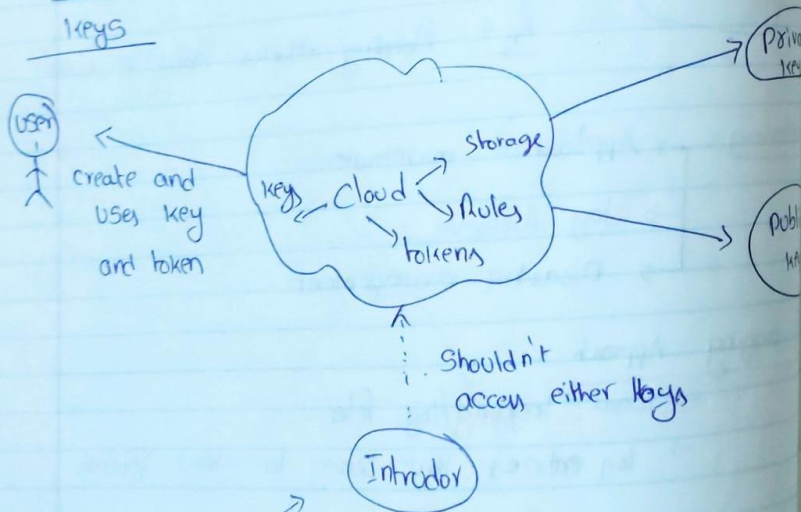 Keys
User
create and
uses key
and token
storage
keys
Cloud
Rules
tokens
Priv
key
Publ
Shouldn't
access either Keys
Intrudor